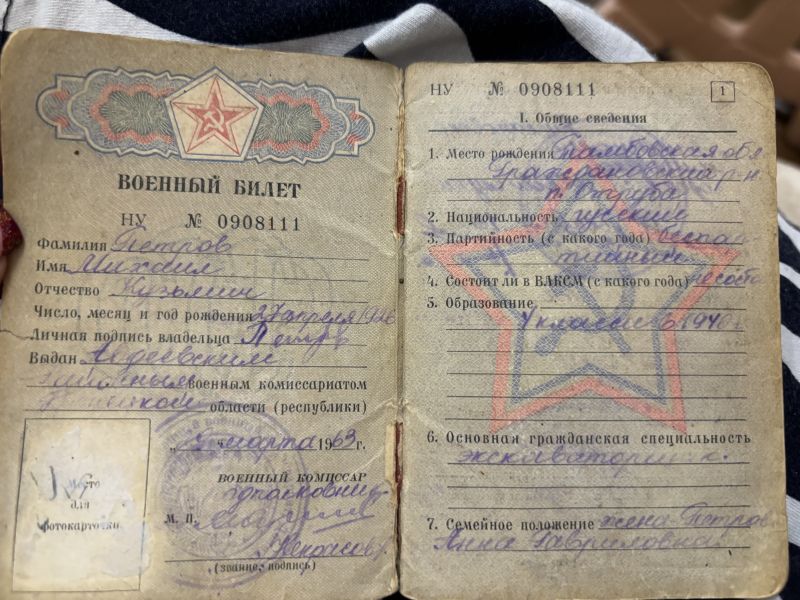 ВОЕННЫЙ БИЛЕТ
НУ № 0908111
Фамилия Петров
Имя Михаил
Отчество Кузьмич
Число, месяц и год рождения 27 апреля 1926
Личная подпись владельца Петров
Выдан Авдеевским
районным военным комиссариатом
области (республики)
марта 1963 г.
ВОЕННЫЙ КОМИССАР
подполковник
М. П.
Некрасов
(звание, подпись)
Место
для
фотокарточки
НУ № 0908111
1
I. Общие сведения
1. Место рождения Тамбовская обл
р-н
п Отруба
2. Национальность русский
3. Партийность (с какого года) беспар
тийный
4. Состоит ли в ВЛКСМ (с какого года) не состо
5. Образование
4 класса в 1940 г
6. Основная гражданская специальность
экскаваторщик.
7. Семейное положение жена Петрова
Анна Гавриловна